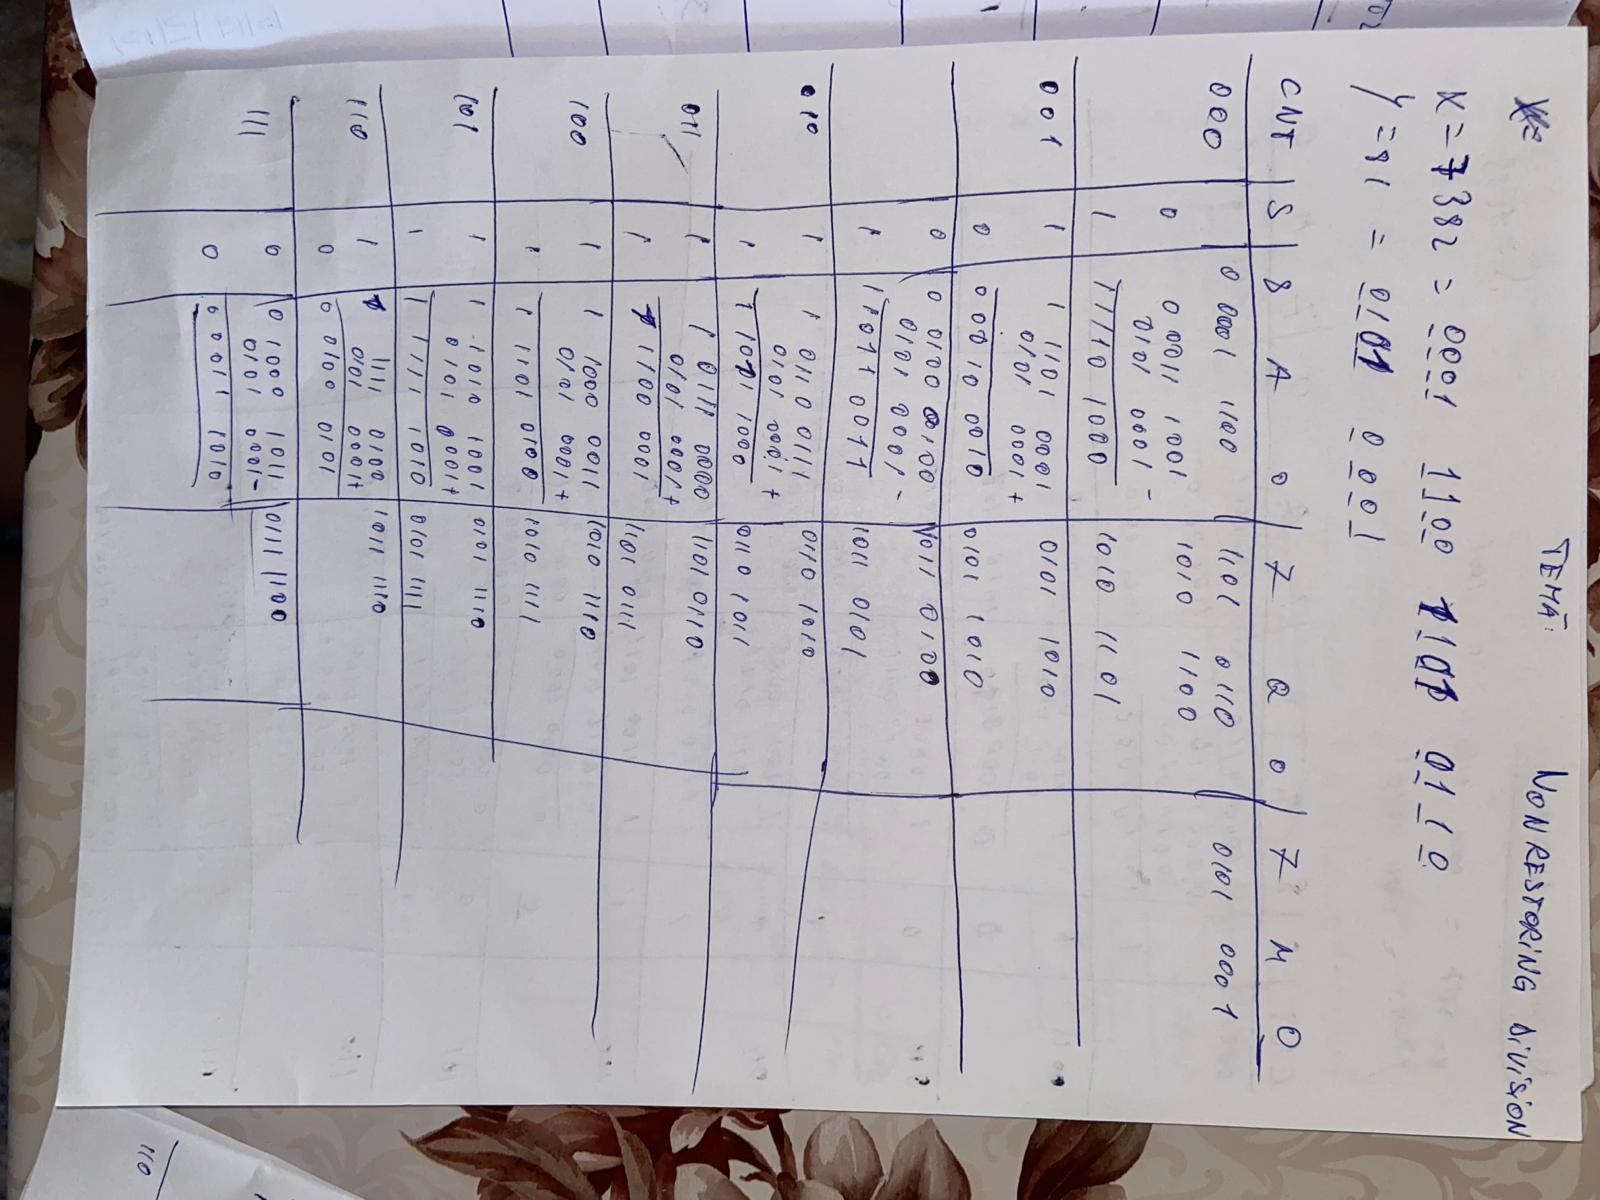 TEMĂ: NONRESTORING DIVISION
X = 7382 = 0001 1100 1101 0110
Y = 81 = 0101 0001
CNT S 8 A 0 7 Q 0 7 M 0
000 0 0001 1100 1101 0110 0101 0001
0 0 0011 1001 1010 1100
0101 0001 -
1 1 1110 1000 1010 1101
001 1 1 1101 0001 0101 1010
0101 0001 +
0 0 0010 0010 0101 1010
0 0 0100 0100 1011 0100
0101 0001 -
1 1 1011 0011 1011 0101
010 1 1 0110 0111 0110 1010
0101 0001 +
1 1 1001 1000 0110 1011
011 1 1 0111 0000 1101 0110
0101 0001 +
1 1 1100 0001 1101 0111
100 1 1 1000 0011 1010 1110
0101 0001 +
1 1 1101 0100 1010 1111
101 1 1 1010 1001 0101 1110
0101 0001 +
1 1 1111 1010 0101 1111
110 1 1 1111 0100 1011 1110
0101 0001 +
0 0 0100 0101
111 0 0 1000 1011 0111 1100
0101 0001 -
0 0 0011 1010
110